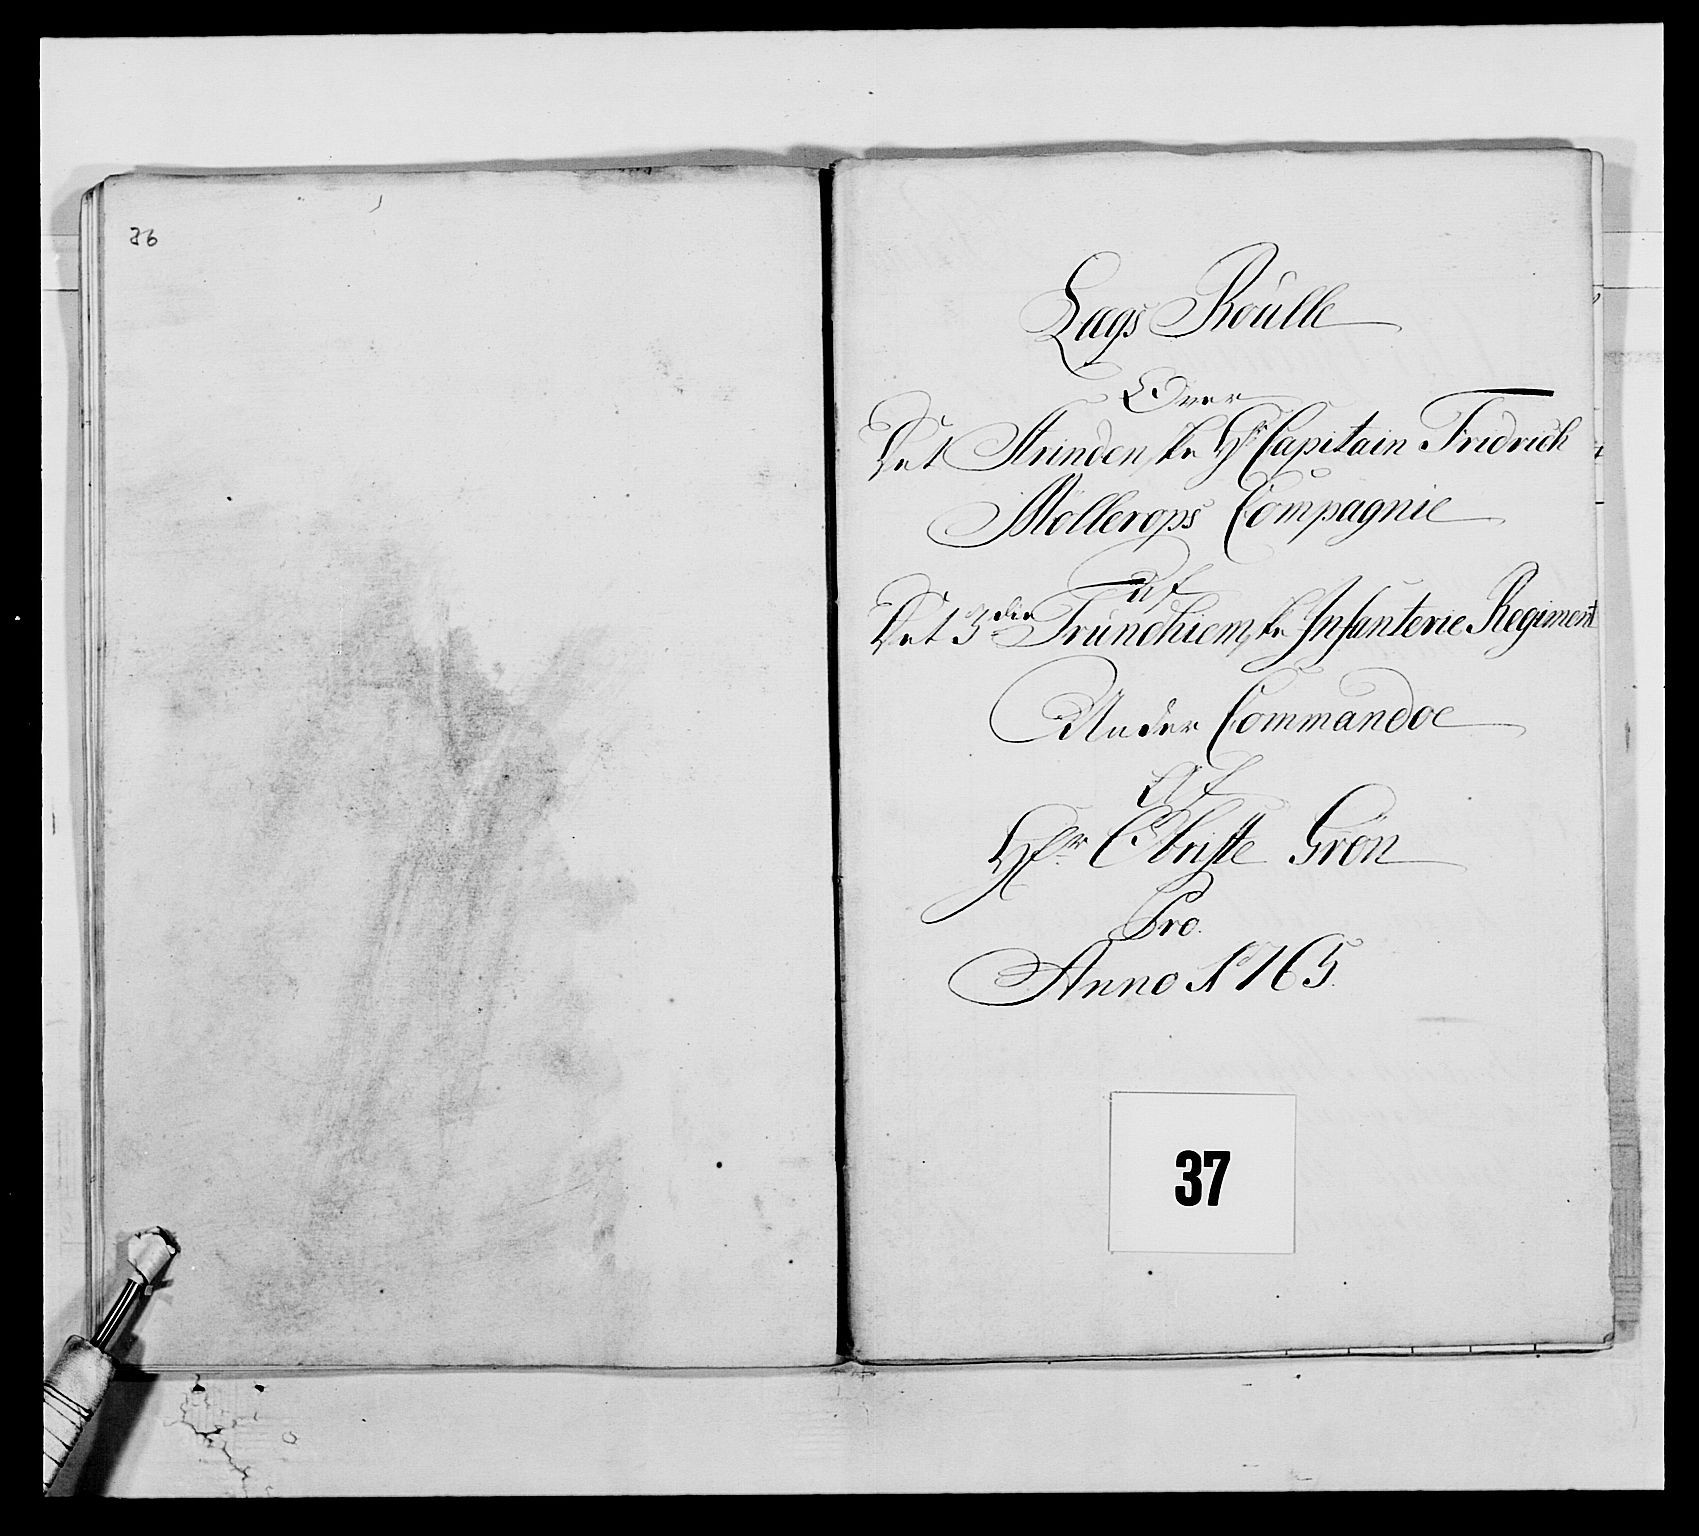 36
Laegs Roulle
Over
Det Strindenske Hr Capitain Fridrich
Möllerops Compagnie
Af
Det 3die Trundhiemske Infanterie Regiment
Under Commandoe
Af
Hr Obriste Grön
Pro.
Anno 1765.
37